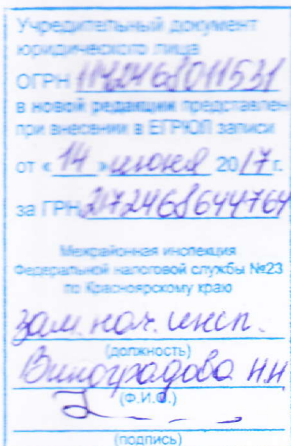 Учредительный документ
юридического лица
ОГРН 1142468011531
в новой редакции представлен
при внесении в ЕГРЮЛ записи
от « 14 » июня 2017 г.
за ГРН 2172468644764
Межрайонная инспекция
Федеральной налоговой службы №23
по Красноярскому краю
зам. нач. инсп.
(должность)
Виноградова Н.Н
(Ф.И.О.)
(подпись)